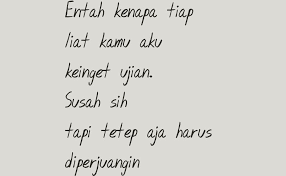 Entah kenapa tiap
liat kamu aku
keinget ujian.
Susah sih
tapi tetep aja harus
diperjuangin